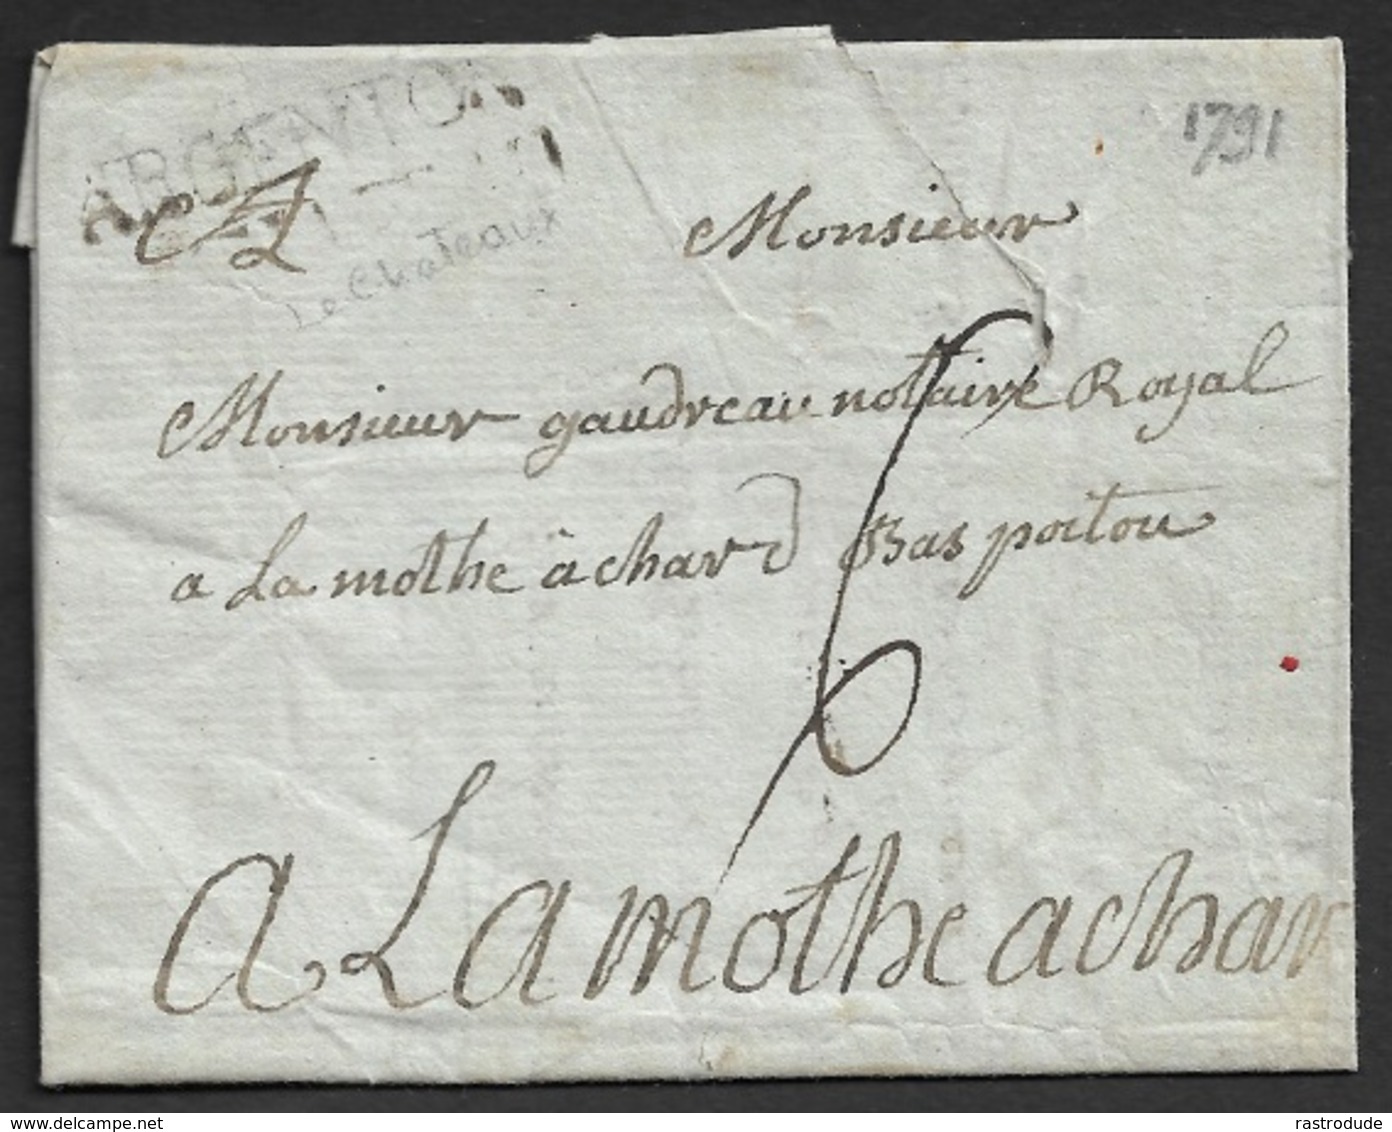 ARGENTON
1791
Le Chateaux
Monsieur
Monsieur gaudreau notaire Royal
a La mothe àchard Bas poitou
6
a La mothe achar
delcampe.net
rastrodude